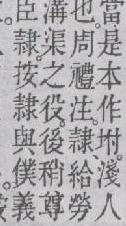 當是本作坿淺人
也周禮注隸給勞
溝渠之役後稍尊
臣隸按隸與僕義